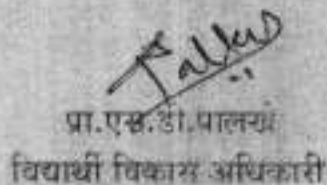 प्रा.एस.डी.पालखे
विद्यार्थी विकास अधिकारी